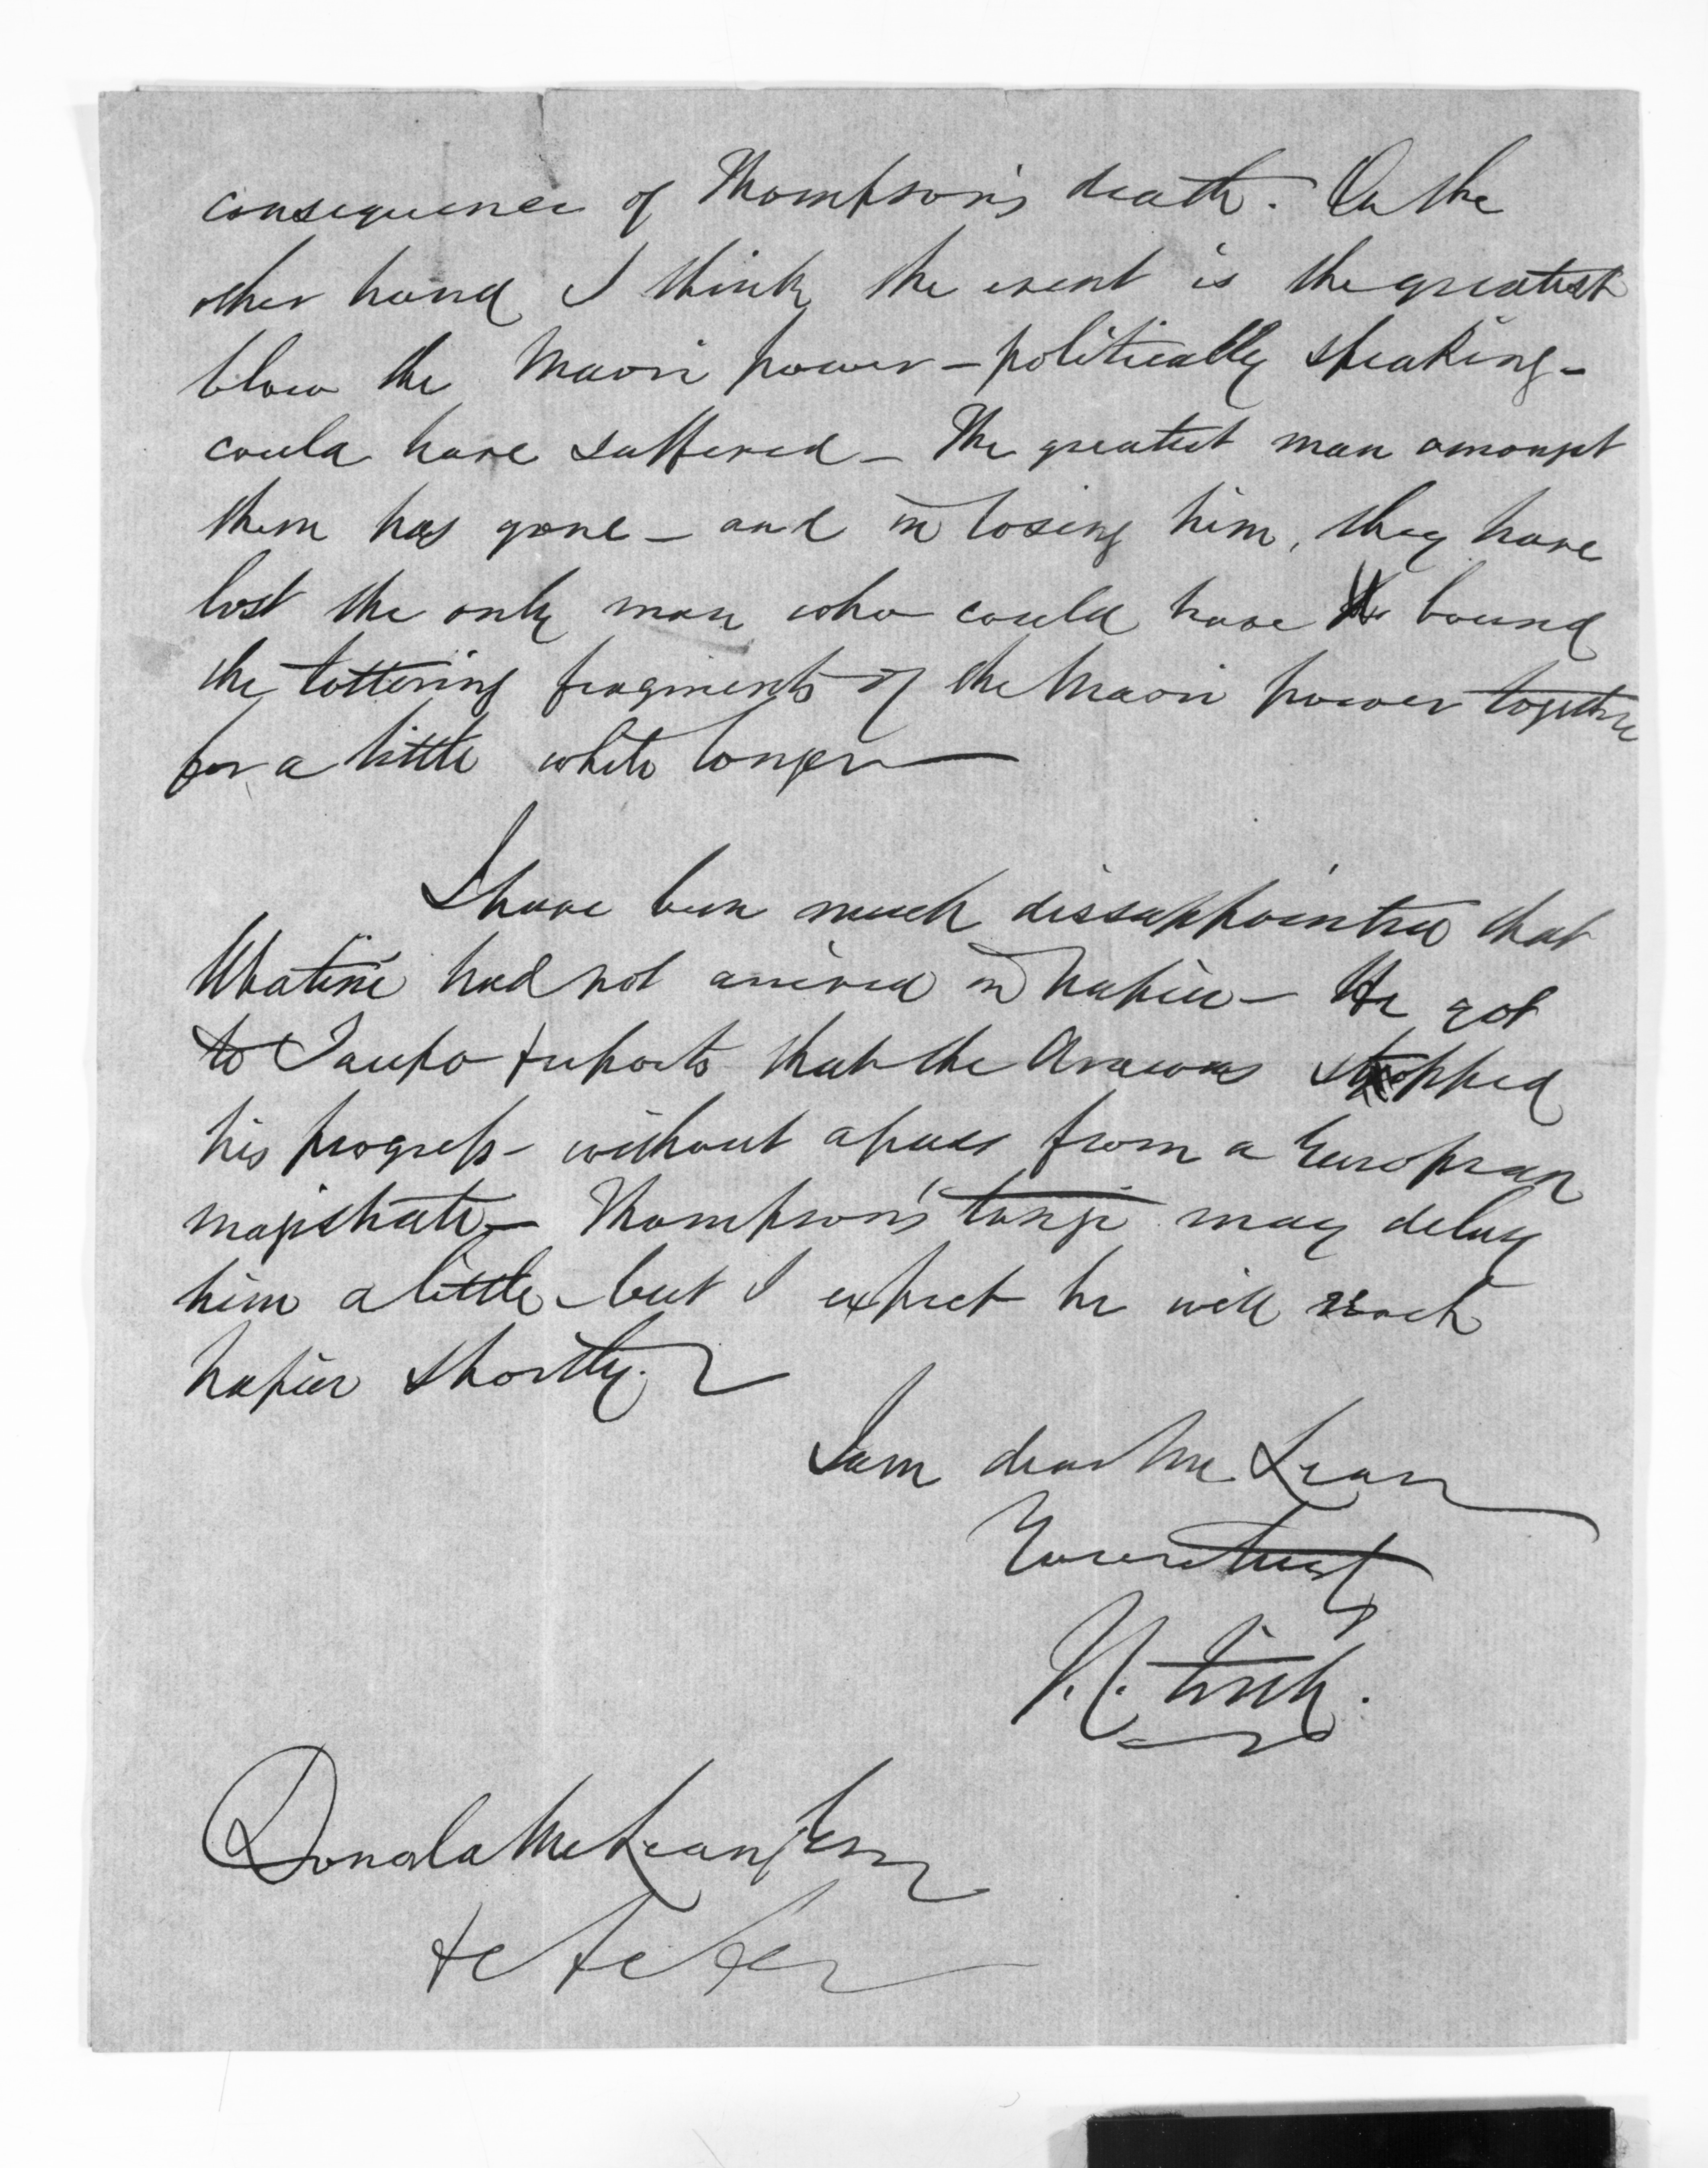 consequence of Thompson's death. On the
other hand I think the event is the greatest
blow the Maori power - politically speaking -
could have suffered - The greatest man amongst
them has gone - and in losing him, they have
lost the only man who could have bound
the tottering fragments of the Maori power together
for a little while longer
I have been much dissappointed that
had not arrived in Napier - He got
to Taupo & reports that the Arawas stopped
his progress - without a pass from a European
magistrate - Thompson's tangi may delay
him a little - but I expect he will reach
Napier shortly.
I am dear McLean
Yours truly
Donald McLean Esqr
&c &c &c